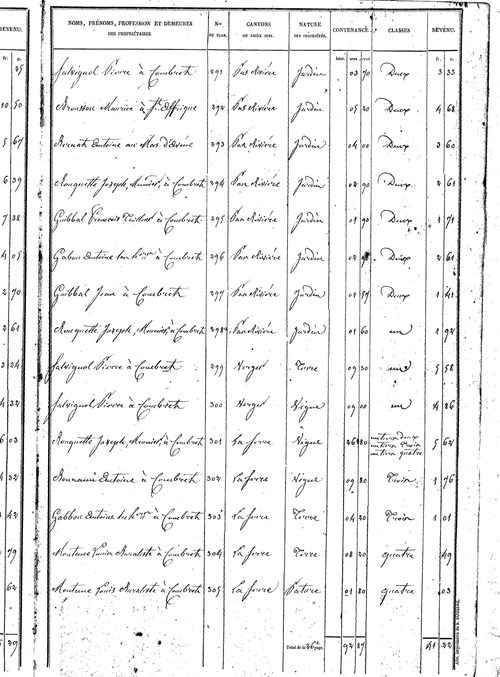 NOMS, PRÉNOMS, PROFESSION ET DEMEURES DES PROPRIÉTAIRES. Nos DU PLAN. CANTONS OU LIEUX DITS. NATURE DES PROPRIÉTÉS. CONTENANCE. CLASSES REVENU.
REVENU.
fr. c. hect. ares cent. fr. c.
25 Salvignol Pierre à Combreth 291 Pas Rivière Jardin 03 70 Deux 3 33
10 50 Brousson Maurice à St Affrique 292 Pas Rivière Jardin 05 20 Deux 4 68
5 67 Antoine au Mas 293 Pas Rivière Jardin 04 00 Deux 3 60
6 39 Rouquette Joseph, Meunier, à Combreth 294 Pas Rivière Jardin 02 90 Deux 2 61
7 38 Guibbal François à Combreth 295 Pas Rivière Jardin 01 90 Deux 1 71
4 05 Gabou Antoine à Combreth 296 Pas Rivière Jardin 02 90 Deux 2 61
2 70 Guibbal Jean à Combreth 297 Pas Rivière Jardin 01 57 Deux 1 41
2 61 Rouquette Joseph, Meunier, à Combreth 298 Pas Rivière Jardin 01 60 un 1 92
3 34 Salvignol Pierre à Combreth 299 Verger Terre 09 30 un 5 58
4 32 Salvignol Pierre à Combreth 300 Verger Vigne 09 00 un 4 86
6 03 Rouquette Joseph, Meunier, à Combreth 301 La ferre Vigne 26 80 un tiers deux un tiers trois un tiers quatre 5 62
4 32 Antoine à Combreth 302 La ferre Vigne 09 80 Trois 1 76
4 42 Gabbou Antoine à Combreth 303 La ferre Terre 04 20 Trois 1 01
79 Louis à Combreth 304 La ferre Terre 08 20 quatre 49
62 Louis à Combreth 305 La ferre Pature 01 80 quatre 03
5 29 Total de la page. 92 87 41 22